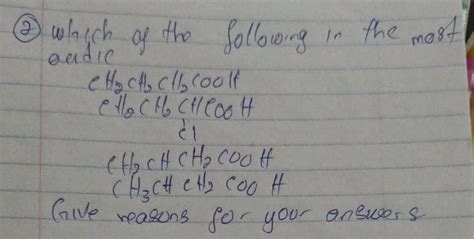 ② which of the following in the most
acidic
CH₂CH₂CH₂COOH
CH₂CH₂CHCOOH
Cl
CH₂CHCH₂COOH
CH₃CHCH₂COOH
Give reasons for your answers